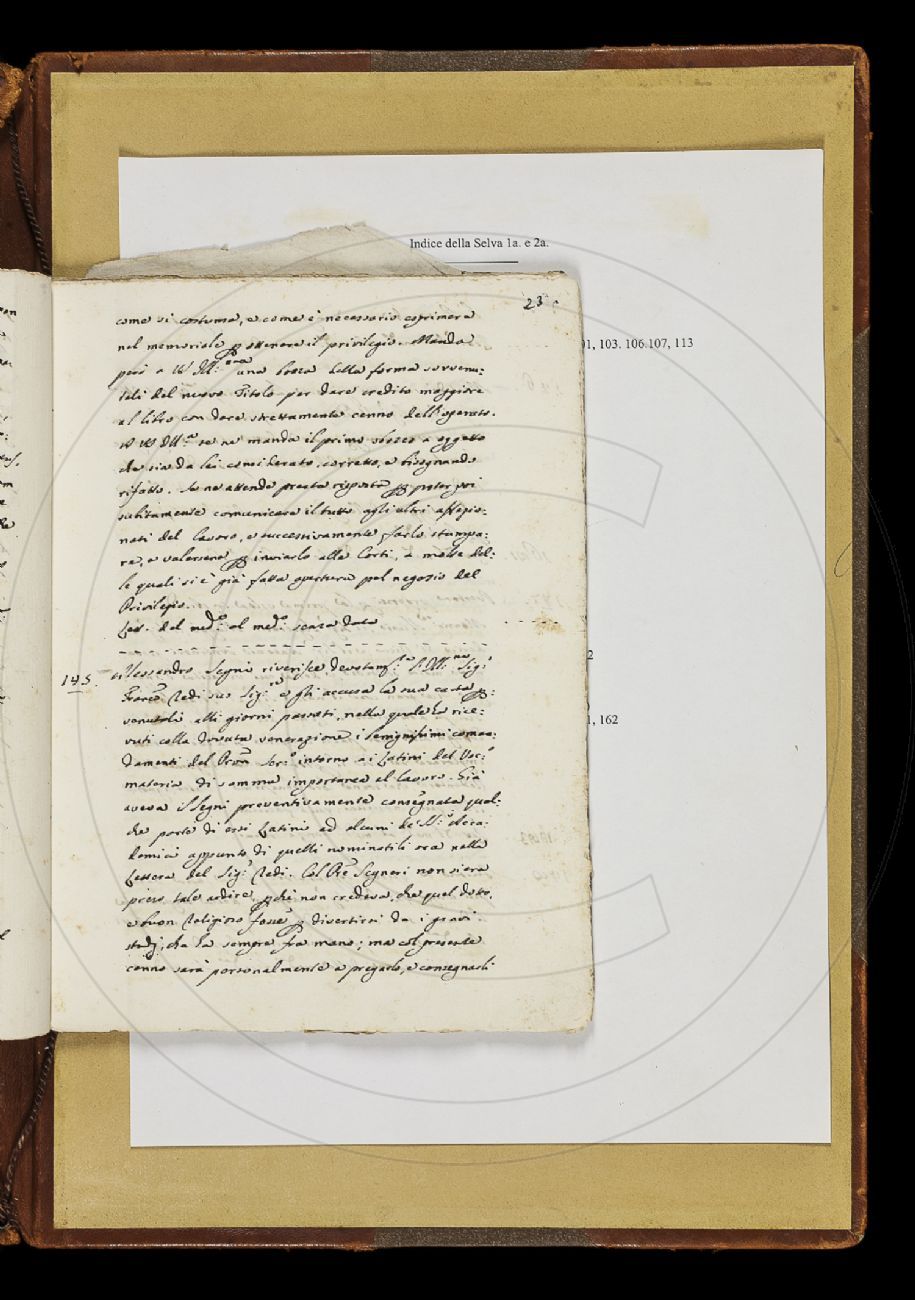 Indice della Selva 1a. e 2a.
1, 103. 106.107, 113
2
1, 162
23
come si costuma, e come è necessario esprimere
nel memoriale p ottenere il privilegio. Manda
però a V.S. Ill.ma una bozza della forma sovvenu:
tali del nuovo Titolo per dare credito maggiore
al libro con dare strettamente cenno dell'operato.
A VS Ill.ma se ne manda il primo sbozzo a oggetto
che sia da lei considerato, corretto, e bisognando
rifatto. Se ne attende presta risposta p poter poi
subitamente comunicare il tutto agli altri affezio:
nati del lavoro, e successivamente farlo stampa:
re, e valersene p inviarlo alle Corti, a molte del:
le quali si è già fatta apertura pel negozio del
Privilegio.
Lett. del med.o al med.o senza data
145. Alessandro Segni riverisce devotam.te l'Ill.mo Sig.r
Franc.o Redi suo Sig.re e gli accusa la sua carta p:
venutale alli giorni passati, nella quale ha rice:
vuti colla dovuta venerazione i benignissimi coman:
damenti del Pron Ser.o intorno a i Latini del Voc.o
materia di somma importanza al lavoro. Già
aveva il Segni preventivamente consegnata qual:
che parte di essi Latini ad alcuni de' SS.i Acca:
demici appunto di quelli nominatili ora nella
Lettera del Sig.r Redi. Col Pre Segneri non si era
preso tale ardire, pchè non credeva, che quel dotto,
e buon Religioso fosse p divertirsi da i gravi
studj, che ha sempre fra mano; ma col presente
cenno sarà personalmente a pregarlo, e consegnarli